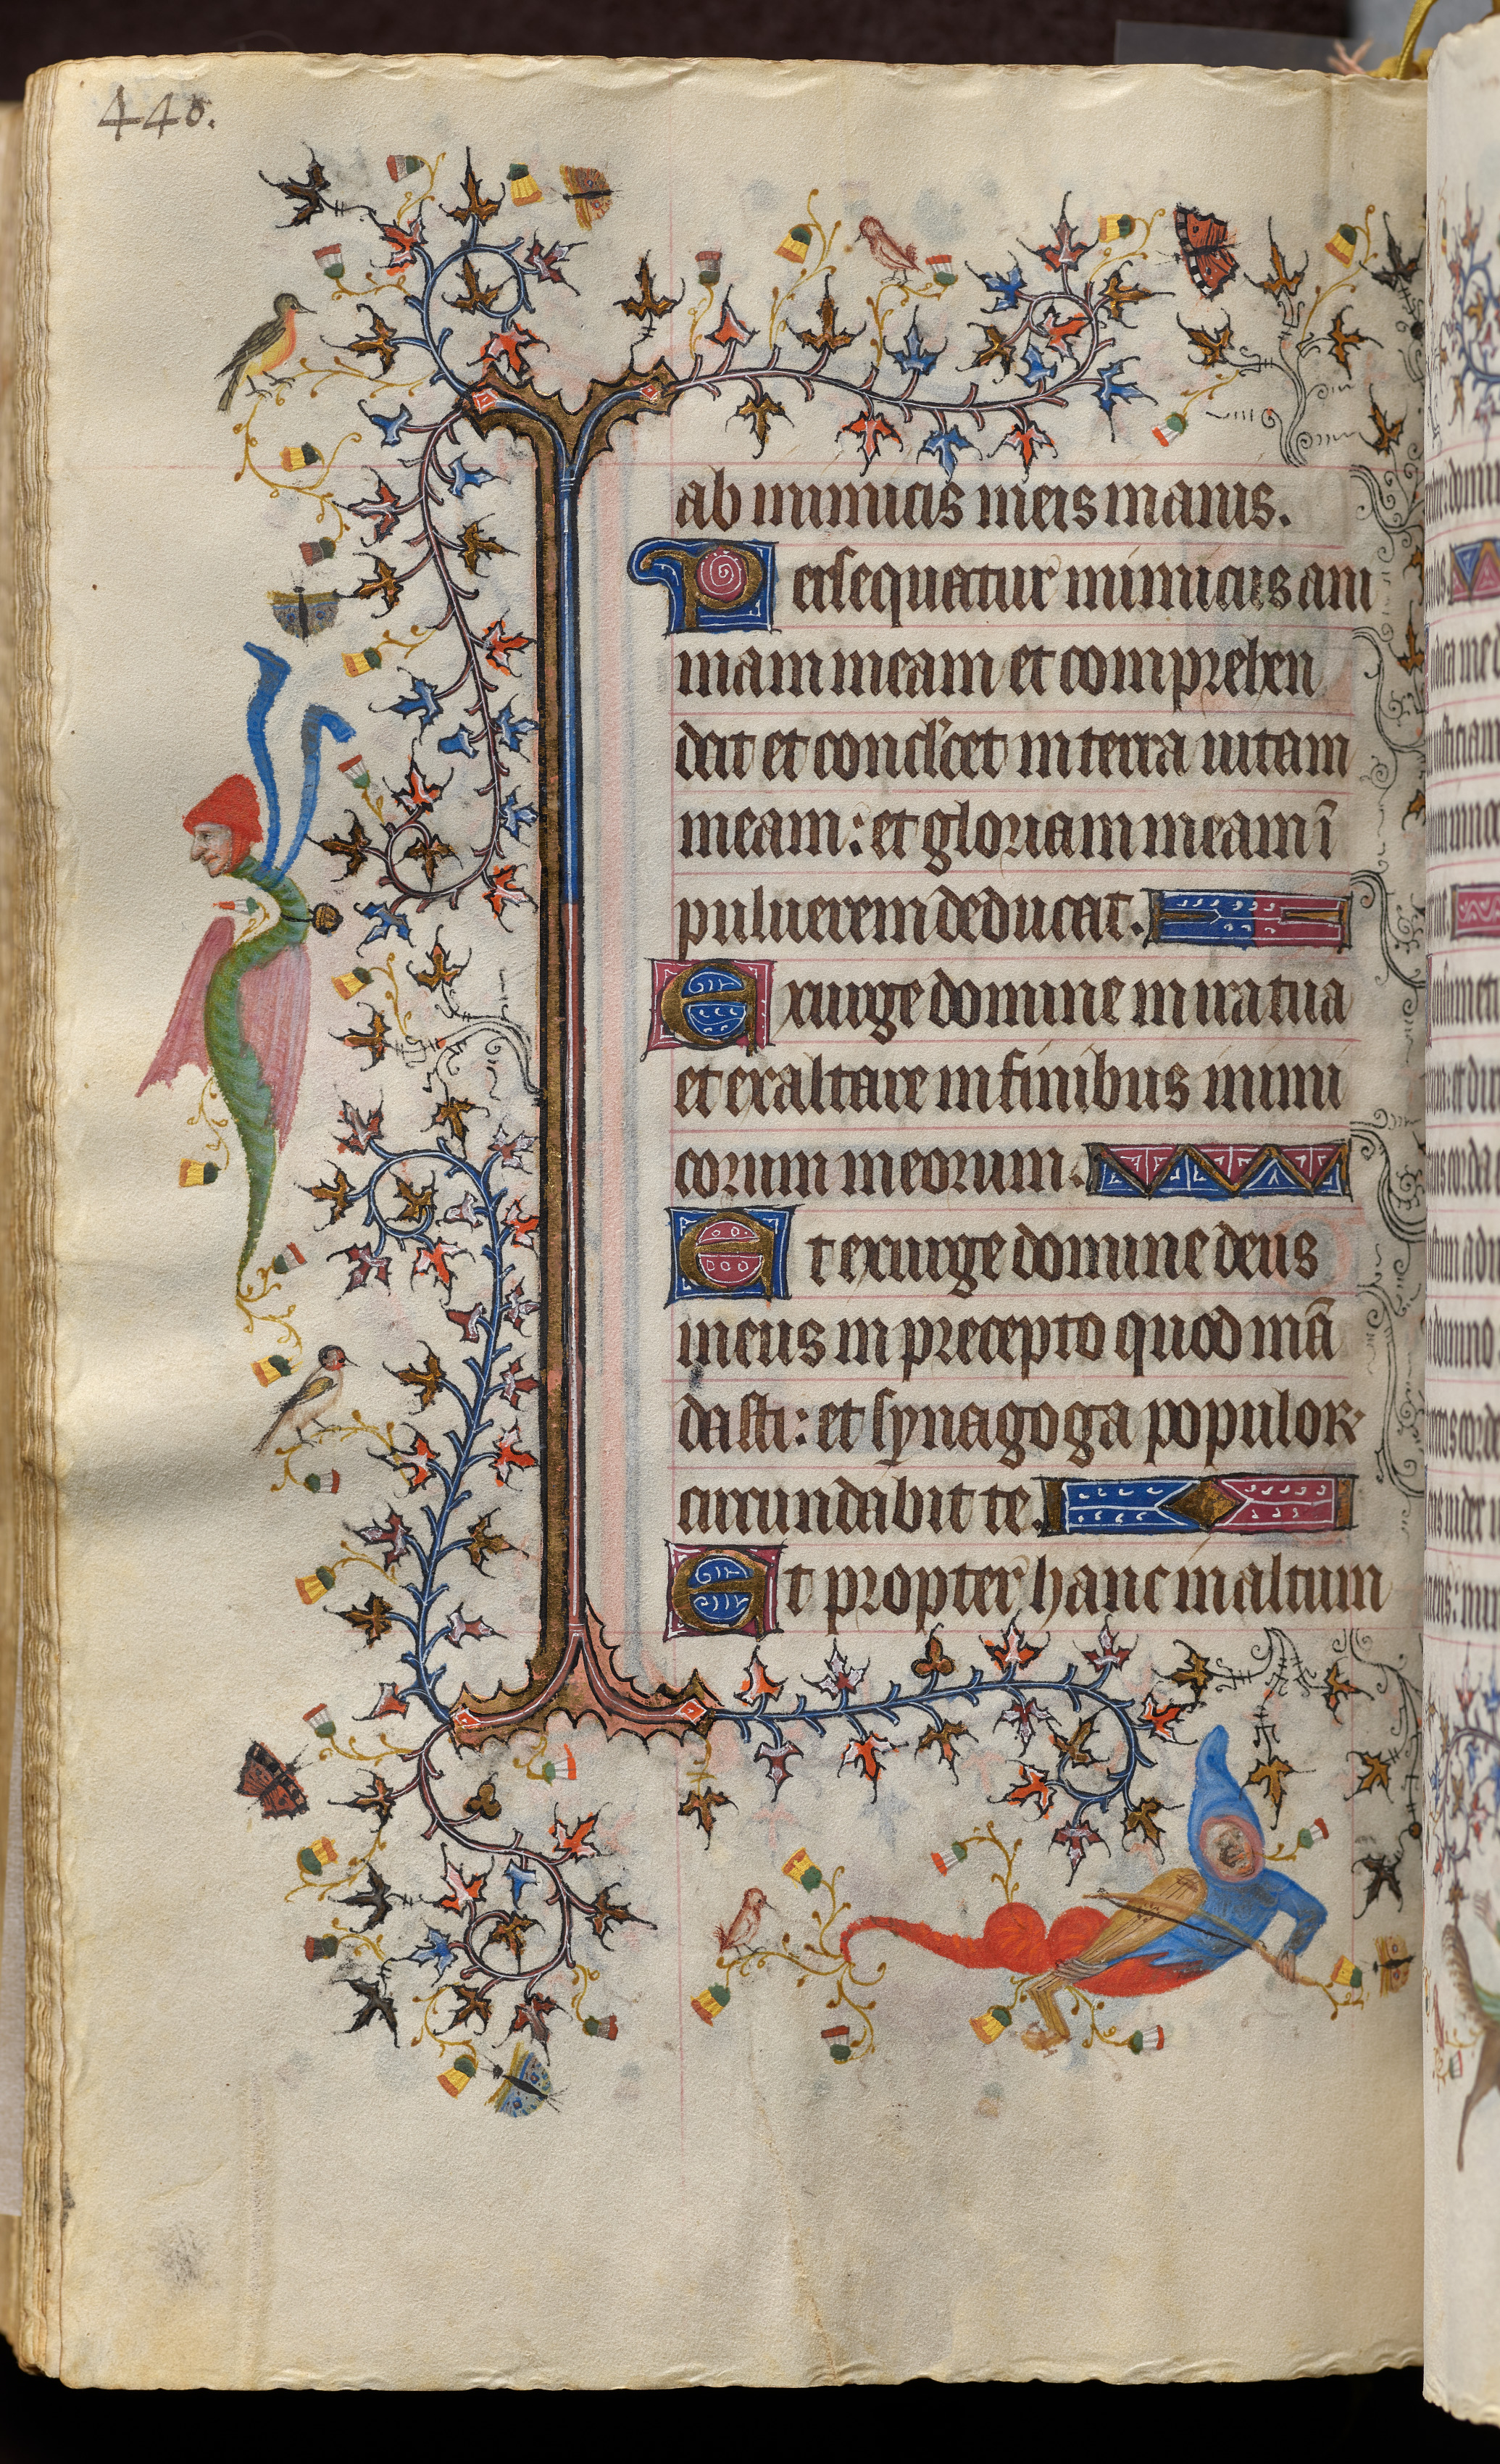 440.
ab inimicis meis inanis.
Persequatur inimicus ani
mam meam et comprehen
dat et conculcet in terra uitam
meam: et gloriam meam ĩ
puluerem deducat.
Exurge domine in ira tua
et exaltare in finibus inimi
corum meorum.
Et exurge domine deus
meus in precepto quod mã
dasti: et synagoga populoꝝ
circundabit te.
Et propter hanc in altum